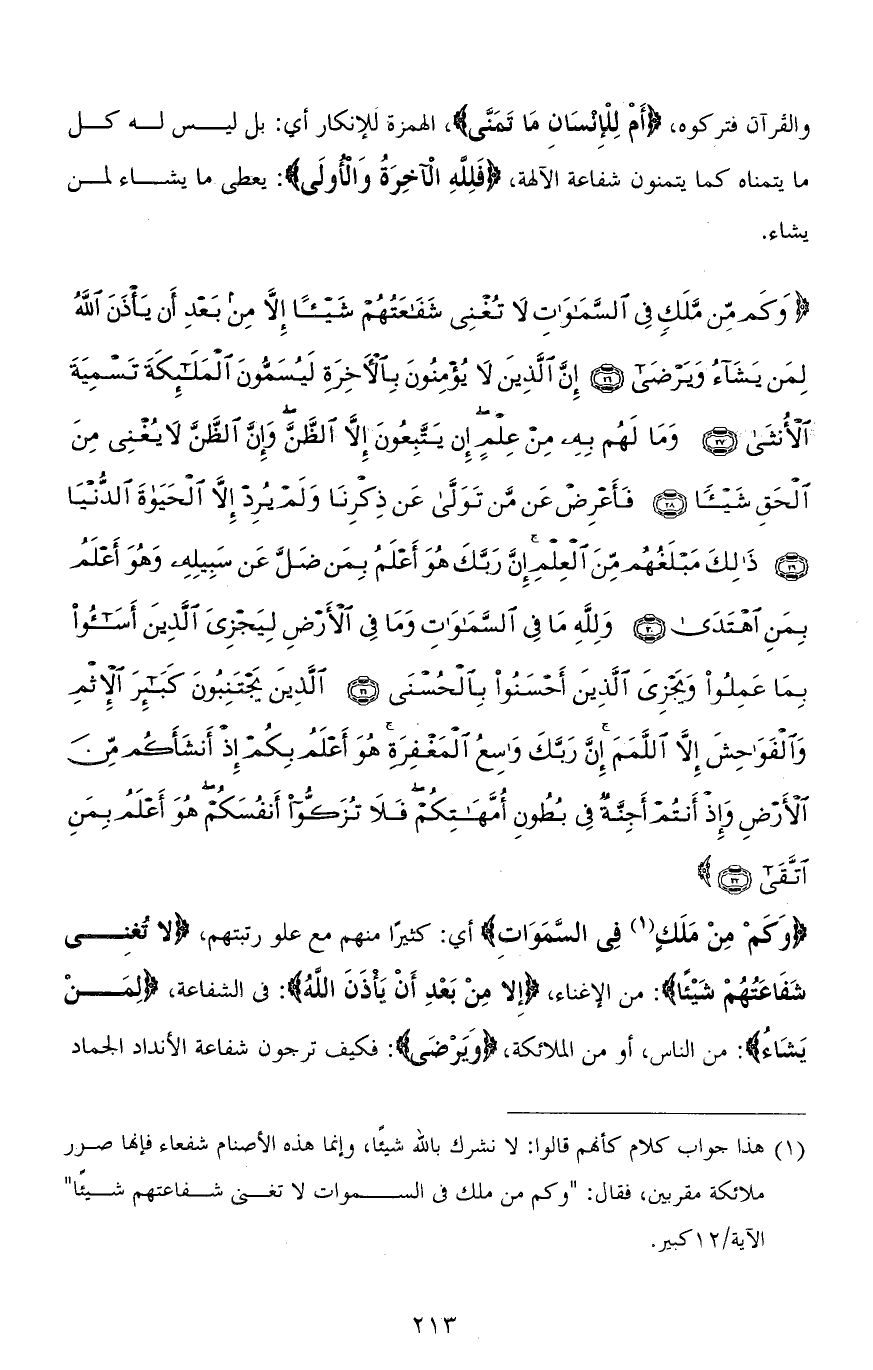 والقرآن فتركوه، ﴿أَمْ لِلْإِنْسَانِ مَا تَمَنَّى﴾، الهمزة للإنكار أي: بل ليس له كل
ما يتمناه كما يتمنون شفاعة الآلهة، ﴿فَلِلَّهِ الْآخِرَةُ وَالْأُولَى﴾: يعطى ما يشاء لمن
يشاء.
﴿ وَكَم مِّن مَّلَكٍ فِى ٱلسَّمَٰوَٰتِ لَا تُغْنِى شَفَٰعَتُهُمْ شَيْـًٔا إِلَّا مِنۢ بَعْدِ أَن يَأْذَنَ ٱللَّهُ
لِمَن يَشَآءُ وَيَرْضَىٰٓ ٢٦ إِنَّ ٱلَّذِينَ لَا يُؤْمِنُونَ بِٱلْأَخِرَةِ لَيُسَمُّونَ ٱلْمَلَٰٓئِكَةَ تَسْمِيَةَ
ٱلْأُنثَىٰ ٢٧ وَمَا لَهُم بِهِۦ مِنْ عِلْمٍ ۖ إِن يَتَّبِعُونَ إِلَّا ٱلظَّنَّ ۖ وَإِنَّ ٱلظَّنَّ لَا يُغْنِى مِنَ
ٱلْحَقِّ شَيْـًٔا ٢٨ فَأَعْرِضْ عَن مَّن تَوَلَّىٰ عَن ذِكْرِنَا وَلَمْ يُرِدْ إِلَّا ٱلْحَيَوٰةَ ٱلدُّنْيَا
٢٩ ذَٰلِكَ مَبْلَغُهُم مِّنَ ٱلْعِلْمِ ۚ إِنَّ رَبَّكَ هُوَ أَعْلَمُ بِمَن ضَلَّ عَن سَبِيلِهِۦ وَهُوَ أَعْلَمُ
بِمَنِ ٱهْتَدَىٰ ٣٠ وَلِلَّهِ مَا فِى ٱلسَّمَٰوَٰتِ وَمَا فِى ٱلْأَرْضِ لِيَجْزِىَ ٱلَّذِينَ أَسَٰٓـُٔوا۟
بِمَا عَمِلُوا۟ وَيَجْزِىَ ٱلَّذِينَ أَحْسَنُوا۟ بِٱلْحُسْنَى ٣١ ٱلَّذِينَ يَجْتَنِبُونَ كَبَٰٓئِرَ ٱلْإِثْمِ
وَٱلْفَوَٰحِشَ إِلَّا ٱللَّمَمَ ۚ إِنَّ رَبَّكَ وَٰسِعُ ٱلْمَغْفِرَةِ ۚ هُوَ أَعْلَمُ بِكُمْ إِذْ أَنشَأَكُم مِّنَ
ٱلْأَرْضِ وَإِذْ أَنتُمْ أَجِنَّةٌ فِى بُطُونِ أُمَّهَٰتِكُمْ ۖ فَلَا تُزَكُّوٓا۟ أَنفُسَكُمْ ۖ هُوَ أَعْلَمُ بِمَنِ
ٱتَّقَىٰٓ ٣٢ ﴾
﴿وَكَمْ مِنْ مَلَكٍ(١) فِى السَّمَوَاتِ﴾ أي: كثيرًا منهم مع علو رتبتهم، ﴿لا تُغْنِى
شَفَاعَتُهُمْ شَيْئًا﴾: من الإغناء، ﴿إِلا مِنْ بَعْدِ أَنْ يَأْذَنَ اللَّهُ﴾: فى الشفاعة، ﴿لِمَنْ
يَشَاءُ﴾: من الناس، أو من الملائكة، ﴿وَيَرْضَى﴾: فكيف ترجون شفاعة الأنداد الجماد
(١) هذا جواب كلام كأنهم قالوا: لا نشرك بالله شيئًا، وإنما هذه الأصنام شفعاء فإنها صرر
ملائكة مقربين، فقال: "وكم من ملك فى السموات لا تغنى شفاعتهم شيئًا"
الآية/١٢كبير.
٢١٣